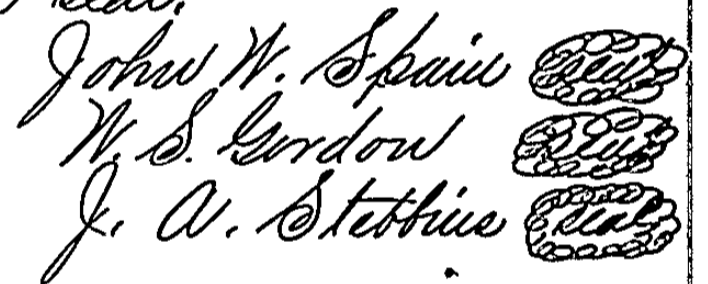 Seal.
John W. Spain Seal
W. S. Gordon Seal
J. A. Stebbins Seal